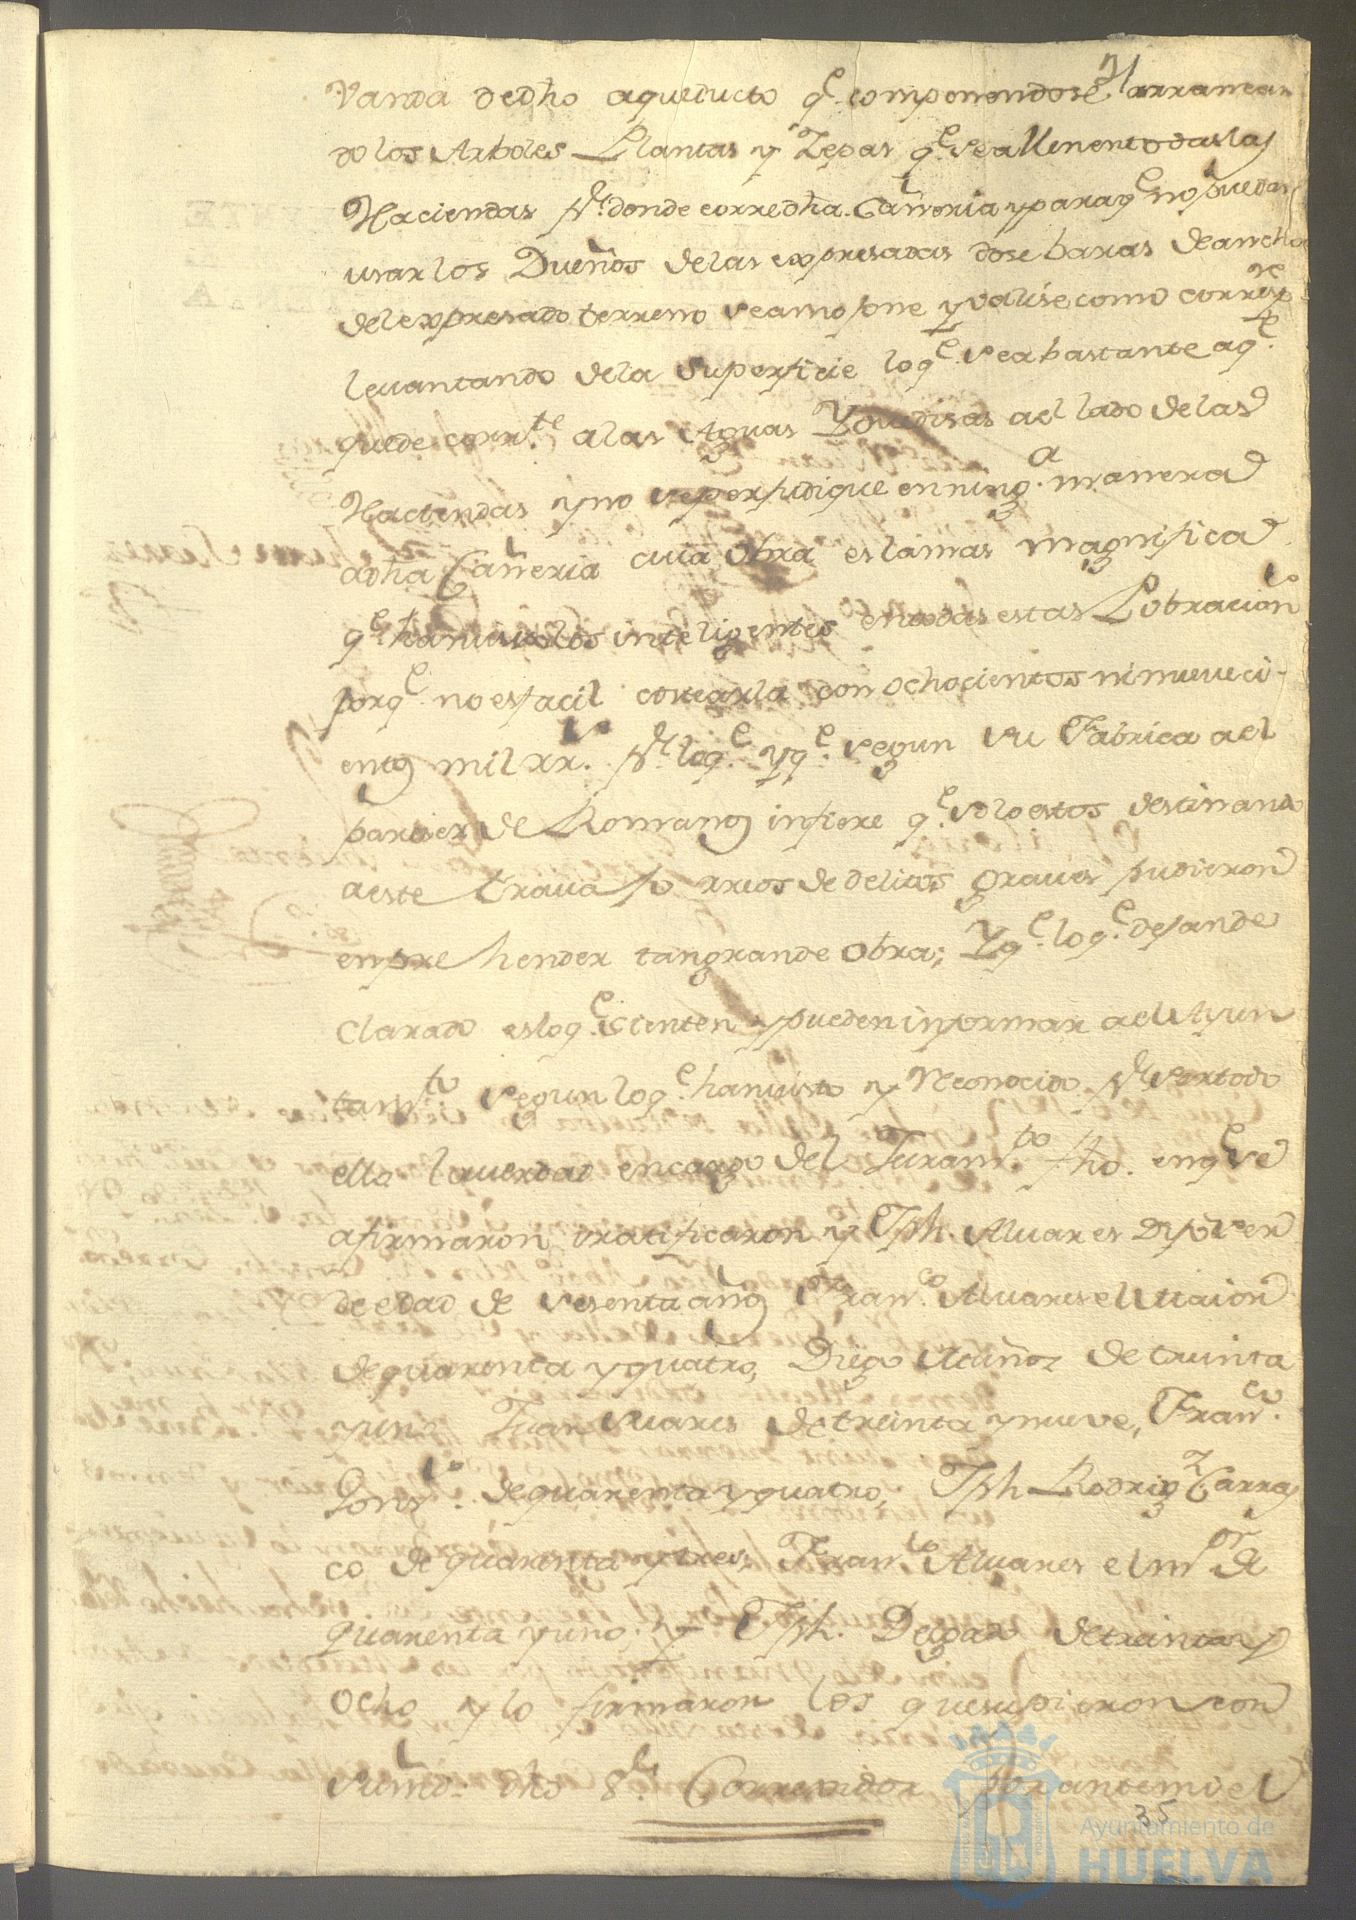 Vanda dedho aqueducto q.e componendose y arrancan
do los Arboles Plantas y Zepas q.e se alimentodaslas
Haciendas p.r donde corredha. Cañeria y paraq.e no puedan
usarlos Dueños delas expresadas dose baras deancho
delexpresado terreno seamojone yvalise como corresp.e
levantando dela Superficie loq.e sea bastante aq.e
quede corr.te alas Aguas ael lado delas
Haciendas y no se perjudique enning.a manera
adha Cañeria cuia Obra eslamas magnifica
q.e hanvisto los inteligentes entodas estas Pobracion.s
porq.e no esfacil costearla con ochocientos ninueveci-
entos mil rr.s p.r loq.e yq.e segun su Fabrica ael
parecer de Romanos infiere q.e solo estos destinando
aeste travajo rreos de delitos graves pudieron
enprehender tangrande Obra; Yq.e loq.e dejande
Clarado esloq.e Cienten y pueden informar ael Ayun
tam.to segun loq.e hanvisto y Reconocido p.r sertodo
ello laverdad encargo del Juram.to fho. enq.e se
afirmaron y ratificaron y Jph. Alvares Dijo ser
de edad de sesenta años Fran.co Alvares el Maior
de quarenta y quatro, Diego Muños de treinta
yuno Juan Suares de treinta y nueve, Fran.co
Gonz.s de quarenta y quatro, Jph Rodrig.z Carras
co de quarenta y tres Fran.co Alvares el m.or de
quarenta y uno, y Jph. Delgado de treinta y
Ocho y lo firmaron los que supieron con
sumd. dho S.r Corregidor por antemi el
35
Ayuntamiento de
HUELVA